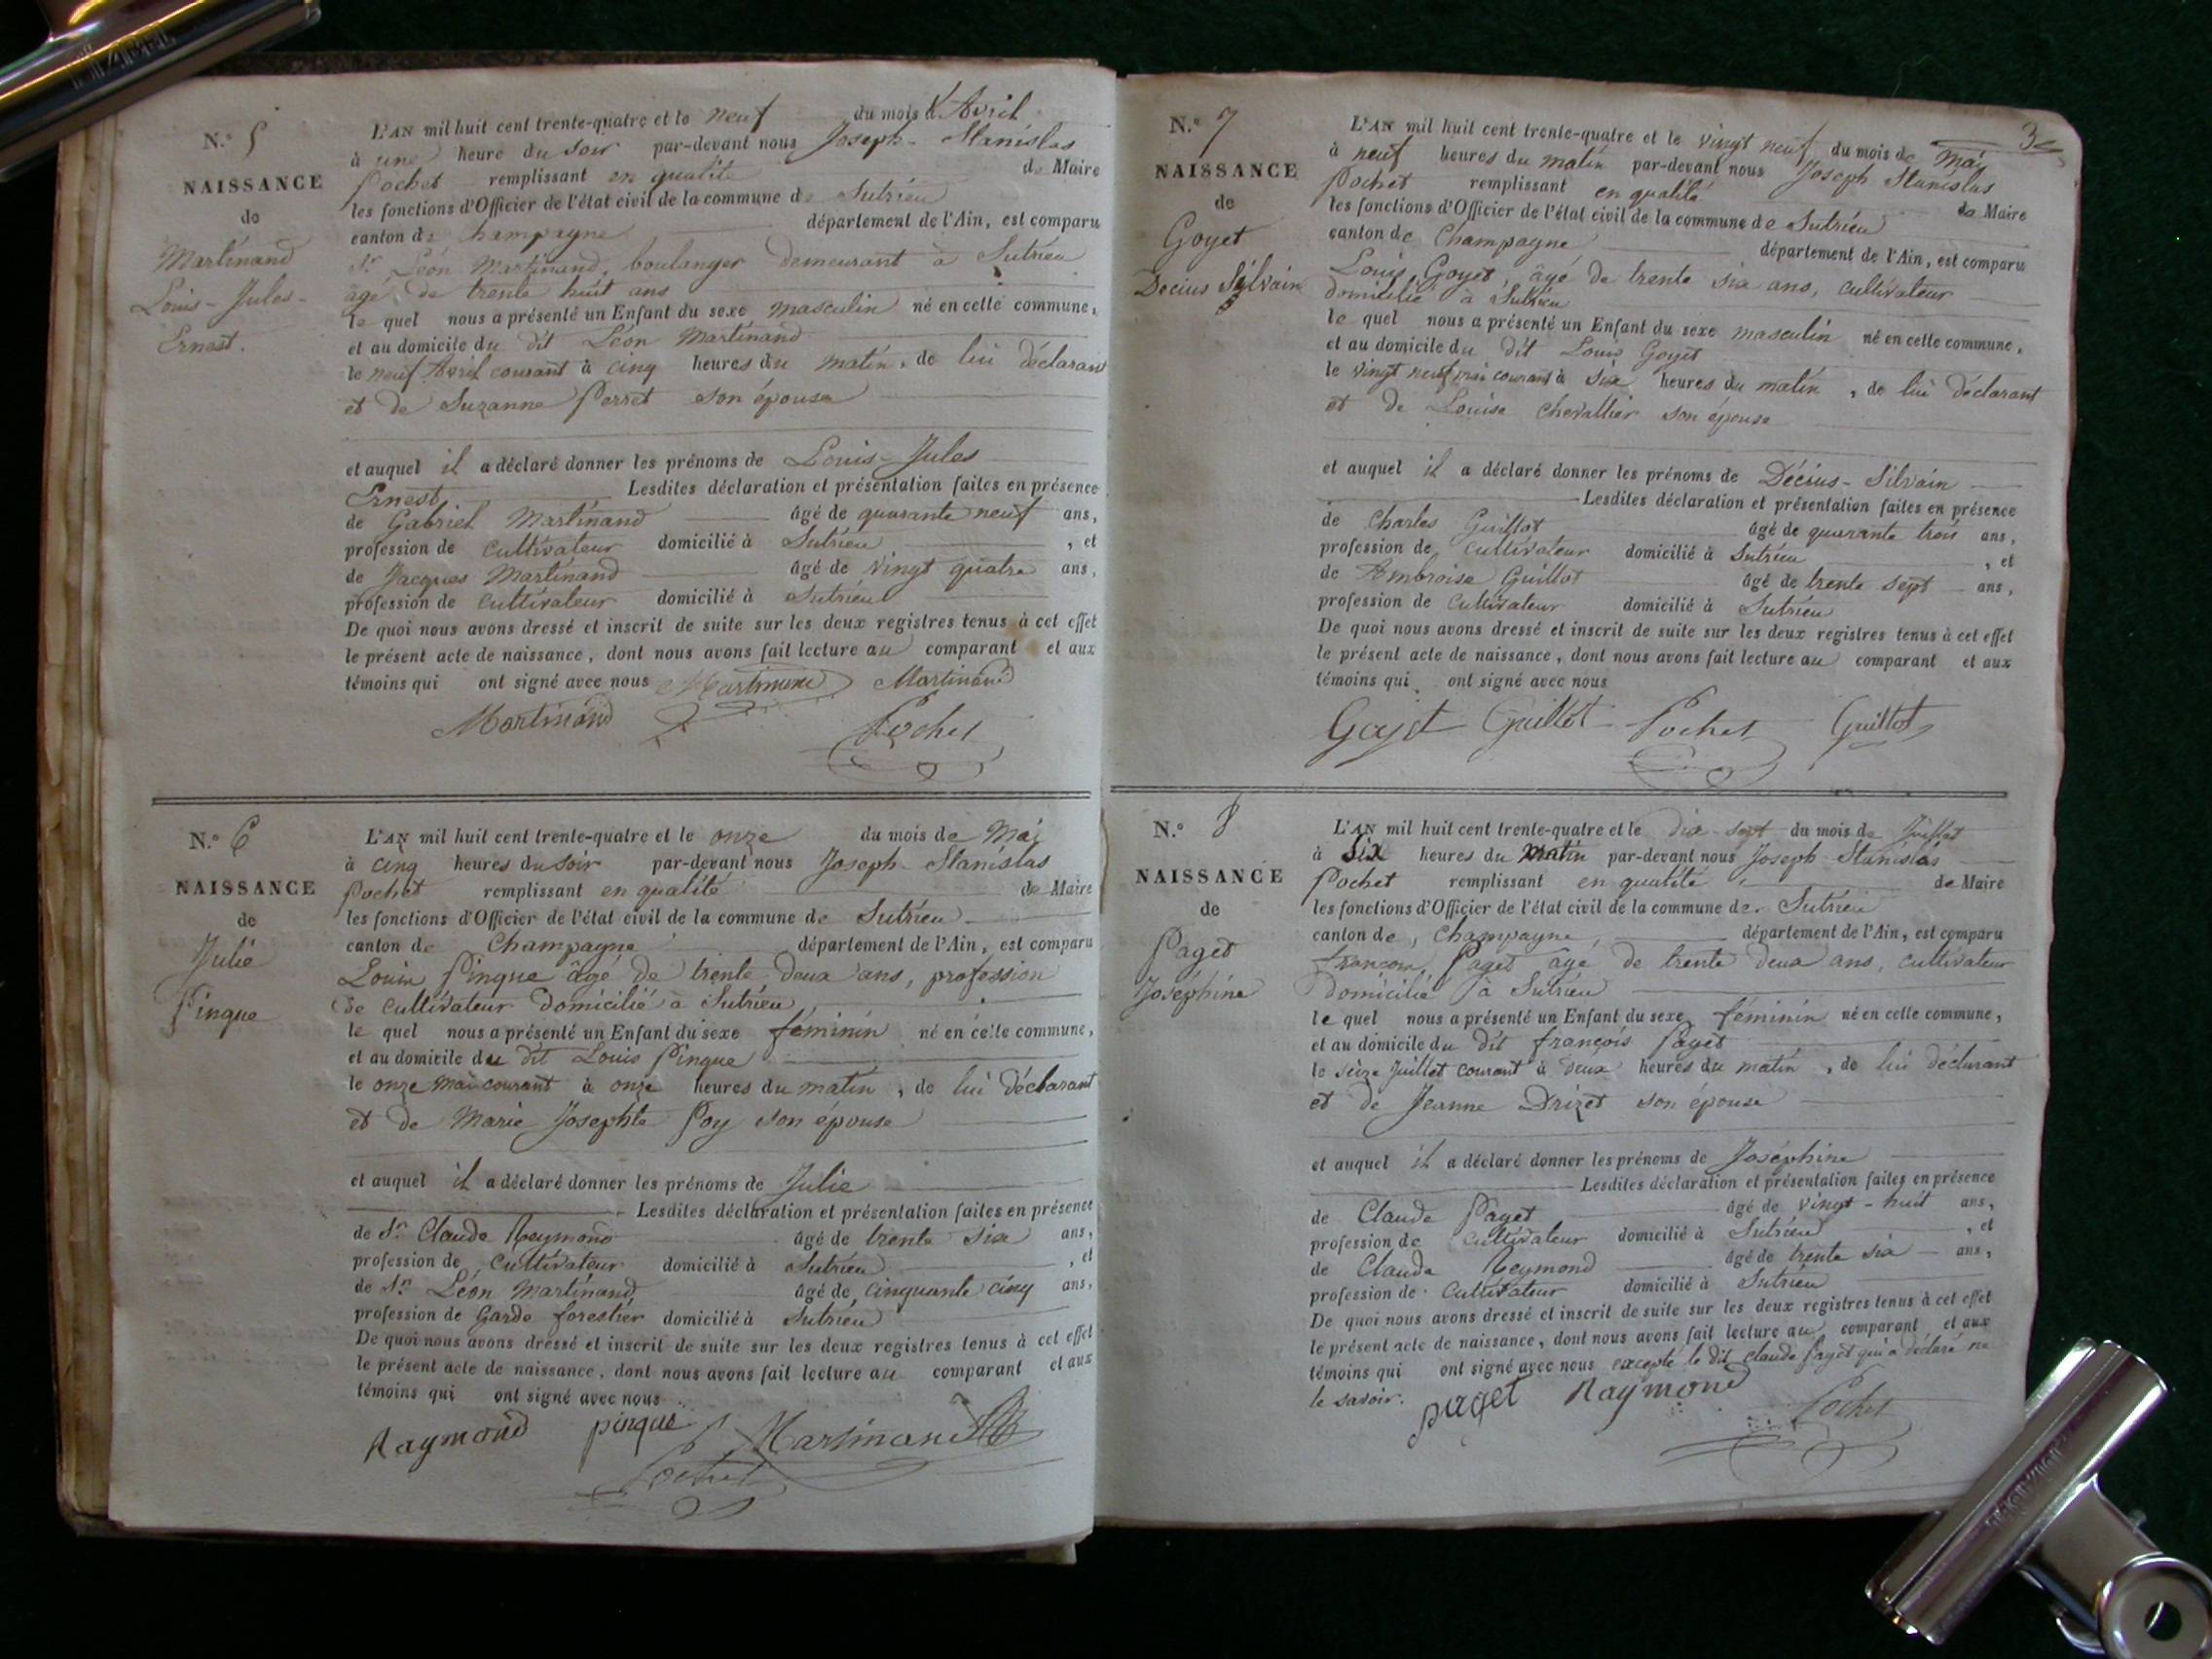 N.° 5
NAISSANCE
de
Martinand
Louis-Jules-
Ernest.
L'AN mil huit cent trente-quatre et le neuf du mois d'Avril
à une heure du soir par-devant nous Joseph-Stanislas
Pochet remplissant en qualité de Maire
les fonctions d'Officier de l'état civil de la commune de Sutrieu
canton de Champagne département de l'Ain, est comparu
Sr Léon Martinand, boulanger demeurant à Sutrieu
âgé de trente huit ans
le quel nous a présenté un Enfant du sexe masculin né en cette commune,
et au domicile du dit Léon Martinand
le neuf Avril courant à cinq heures du matin, de lui déclarant
et de Suzanne Perret son épouse
et auquel il a déclaré donner les prénoms de Louis-Jules
Ernest. Lesdites déclaration et présentation faites en présence
de Gabriel Martinand âgé de quarante neuf ans,
profession de cultivateur domicilié à Sutrieu, et
de Jacques Martinand âgé de vingt quatre ans,
profession de cultivateur domicilié à Sutrieu
De quoi nous avons dressé et inscrit de suite sur les deux registres tenus à cet effet
le présent acte de naissance, dont nous avons fait lecture au comparant et aux
témoins qui ont signé avec nous Martinand Martinand
Martinand Pochet
N.° 6
NAISSANCE
de
Julie
Pingue
L'AN mil huit cent trente-quatre et le onze du mois de Mai
à cinq heures du soir par-devant nous Joseph-Stanislas
Pochet remplissant en qualité de Maire
les fonctions d'Officier de l'état civil de la commune de Sutrieu
canton de Champagne département de l'Ain, est comparu
Louis Pingue âgé de trente deux ans, profession
de cultivateur domicilié à Sutrieu
le quel nous a présenté un Enfant du sexe féminin né en cette commune,
et au domicile du dit Louis Pingue
le onze mai courant à onze heures du matin, de lui déclarant
et de Marie Josephte Poy son épouse
et auquel il a déclaré donner les prénoms de Julie
Lesdites déclaration et présentation faites en présence
de Sr Claude Reymond âgé de trente six ans,
profession de cultivateur domicilié à Sutrieu, et
de Sr Léon Martinand âgé de cinquante cinq ans,
profession de Garde forestier domicilié à Sutrieu
De quoi nous avons dressé et inscrit de suite sur les deux registres tenus à cet effet
le présent acte de naissance, dont nous avons fait lecture au comparant et aux
témoins qui ont signé avec nous
Raymond pingue Martinand
Pochet
3
N.° 7
NAISSANCE
de
Goyet
Decius Silvain
L'AN mil huit cent trente-quatre et le vingt neuf du mois de Mai
à neuf heures du matin par-devant nous Joseph Stanislas
Pochet remplissant en qualité de Maire
les fonctions d'Officier de l'état civil de la commune de Sutrieu
canton de Champagne département de l'Ain, est comparu
Louis Goyet, âgé de trente six ans, cultivateur
domicilié à Sutrieu
le quel nous a présenté un Enfant du sexe masculin né en cette commune,
et au domicile du dit Louis Goyet
le vingt neuf mai courant à six heures du matin, de lui déclarant
et de Louise Chevallier son épouse
et auquel il a déclaré donner les prénoms de Décius-Silvain
Lesdites déclaration et présentation faites en présence
de Charles Guillot âgé de quarante trois ans,
profession de cultivateur domicilié à Sutrieu, et
de Ambroise Guillot âgé de trente sept ans,
profession de cultivateur domicilié à Sutrieu
De quoi nous avons dressé et inscrit de suite sur les deux registres tenus à cet effet
le présent acte de naissance, dont nous avons fait lecture au comparant et aux
témoins qui ont signé avec nous
Goyet Guillot Pochet Guillot
N.° 8
NAISSANCE
de
Paget
Joséphine
L'AN mil huit cent trente-quatre et le dix-sept du mois de Juillet
à six heures du matin par-devant nous Joseph-Stanislas
Pochet remplissant en qualité de Maire
les fonctions d'Officier de l'état civil de la commune de Sutrieu
canton de Champagne département de l'Ain, est comparu
François Paget âgé de trente deux ans, cultivateur
domicilié à Sutrieu
le quel nous a présenté un Enfant du sexe féminin né en cette commune,
et au domicile du dit françois Paget
le seize Juillet courant à deux heures du matin, de lui déclarant
et de Jeanne Drizet son épouse
et auquel il a déclaré donner les prénoms de Joséphine
Lesdites déclaration et présentation faites en présence
de Claude Paget âgé de vingt-huit ans,
profession de cultivateur domicilié à Sutrieu, et
de Claude Reymond âgé de trente six ans,
profession de cultivateur domicilié à Sutrieu
De quoi nous avons dressé et inscrit de suite sur les deux registres tenus à cet effet
le présent acte de naissance, dont nous avons fait lecture au comparant et aux
témoins qui ont signé avec nous excepté le dit Claude Paget qui a déclaré ne
le savoir. paget Raymond Pochet